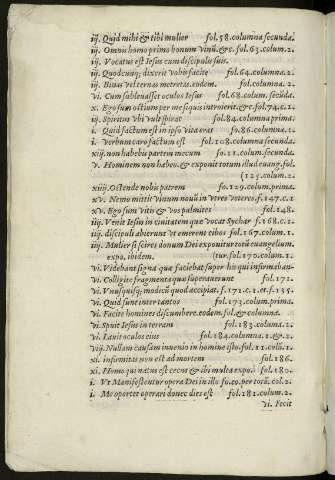 ij. Quid mihi & tibi mulier fol. 58. columna secunda.
ij. Omnis homo primo bonum vinũ. &c. fol. 63. colum. 2.
ij. Vocatus est Iesus cum discipulis suis.
ij. Quodcunq; dixerit vobis facite fol. 64. columna. 2.
ij. Binas vel ternas metretas. eodem. columna. 2.
vi. Cum sublevasset oculos Iesus fol. 68. colum. secũda.
x. Ego sum ostium per me si quis introierit. &c. fol. 74. c. 2.
iij. Spiritus vbi vult spirat fol. 84. columna prima.
i. Quid factum est in ipso vita erat fo. 86. columna. 2.
i. verbum caro factum est fol. 108. columna secunda.
xiij. non habebis partem mecum fo. 11. colum. secunda.
v. Hominem non habeo. & exponit totum illud euang. fol.
(125. colum. 2.
xiiij. Ostende nobis patrem fo. 129. colum. prima.
xv. Nemo mittit vinum nouũ in vtres veteres. f. 147. c. 1
xv. Ego sum vitis & vos palmites fol. 148.
iiij. Venit Iesus in ciuitatem quæ vocat Sychar f. 168. c. 2.
iiij. discipuli abierunt vt emerent cibos fol. 167. colum. 1.
iiij. Mulier si scires donum Dei exponitur totũ euangelium.
expo. ibidem. (tur. fol. 170. colum. 1.
vi. Videbant signa quæ faciebat super his qui infirmaban-
vi. Colligite fragmenta quæ superauerunt fol. 171.
vi. Vnusquisq; modicũ quod accipiat. f. 171. c. 1. et f. 135.
vi. Quid sunt inter tantos fol. 173. colum. prima.
vi. Facite homines discumbere. eodem. fol. & columna.
vi. Spuit Iesus in terram fol. 183. columa. 2.
vi. Lauit oculos eius fol. 184. columna. 1. & 2.
vij. Nullam causam inuenio in homine isto. fol. 11. colũ. 2.
xi. infirmitas non est ad mortem fol. 186.
xi. Homo qui natus est cecus & ibi multa expo. fol. 180.
i. Vt Manifestentur opera Dei in illo fo. eo. per totũ. col. 2.
i. Me oportet operari donec dies est fol. 181. colum. 2.
vi. Fecit